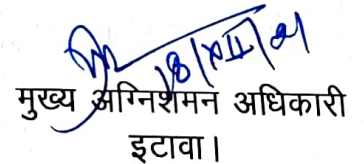 18/XII/21
मुख्य अग्निशमन अधिकारी
इटावा।